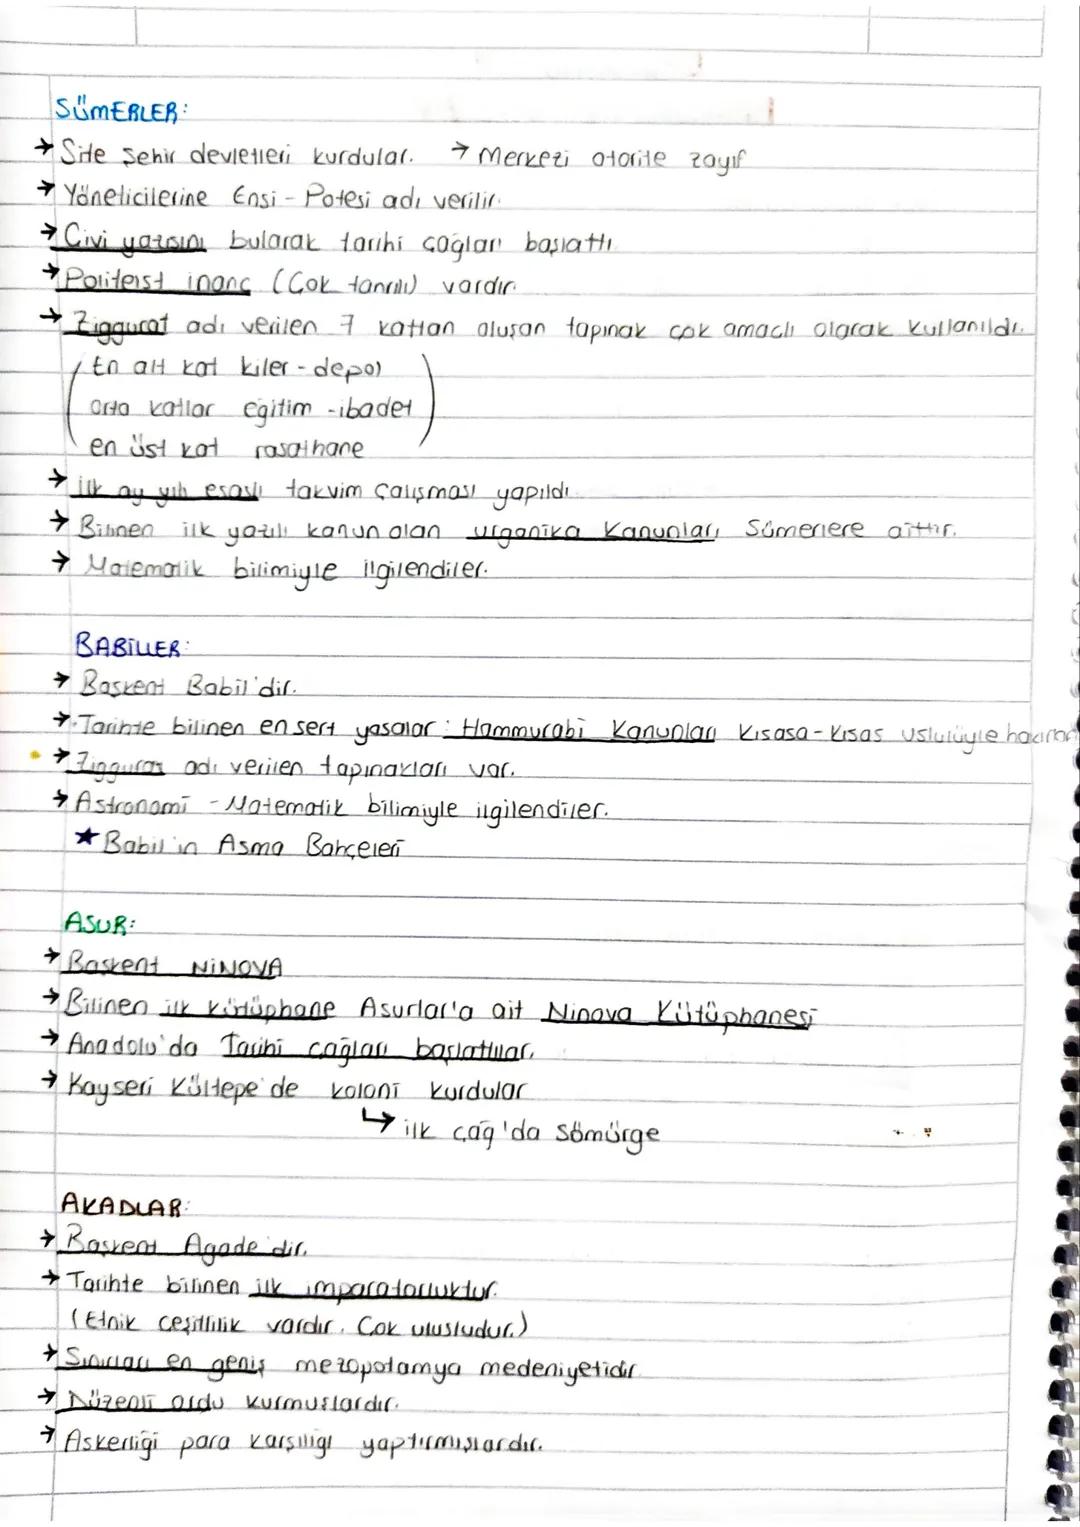 SÜMERLER:
→ Site şehir devletleri kurdular. → Merkezi otorite zayıf
→ Yöneticilerine Ensi - Potesi adı verilir.
→ Çivi yazısını bularak tarihi çağları başlattı
→ Politeist inanç (Çok tanrılı) vardır.
→ Ziggurat adı verilen 7 kattan oluşan tapınak çok amaçlı olarak kullanıldı.
(En alt kat kiler - depo)
orta katlar eğitim - ibadet
en üst kat rasathane
→ ilk ay yılı esaslı takvim çalışması yapıldı.
→ Bilinen ilk yazılı kanun olan urganika Kanunları Sümerlere aittir.
→ Matematik bilimiyle ilgilendiler.
BABİLLER:
→ Başkent Babil'dir.
→ Tarihte bilinen en sert yasalar : Hammurabi Kanunları Kısasa-Kısas usluluyle
→ Ziggurat adı verilen tapınakları var.
→ Astronomi - Matematik bilimiyle ilgilendiler.
★ Babil'in Asma Bahçeleri
ASUR:
→ Başkent NİNOVA
→ Bilinen ilk kütüphane Asurlar'a ait Ninova Kütüphanesi
→ Anadolu'da Tarihi çağları başlattılar.
→ Kayseri Kültepe'de koloni kurdular
↳ ilk çağ'da sömürge
AKADLAR:
→ Başkent Agade'dir.
→ Tarihte bilinen ilk imparatorluktur.
(Etnik çeşitlilik vardır. Çok ulusludur.)
→ Sınırları en geniş mezopotamya medeniyetidir
→ Düzenli ordu kurmuşlardır.
→ Askerliği para karşılığı yaptırmışlardır.